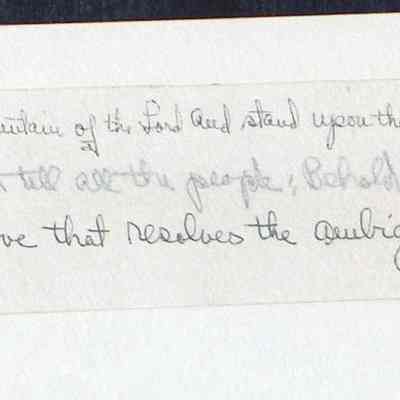 untain of the Lord and stand upon the
tell all the people; Behold
ve that resolves the ambig